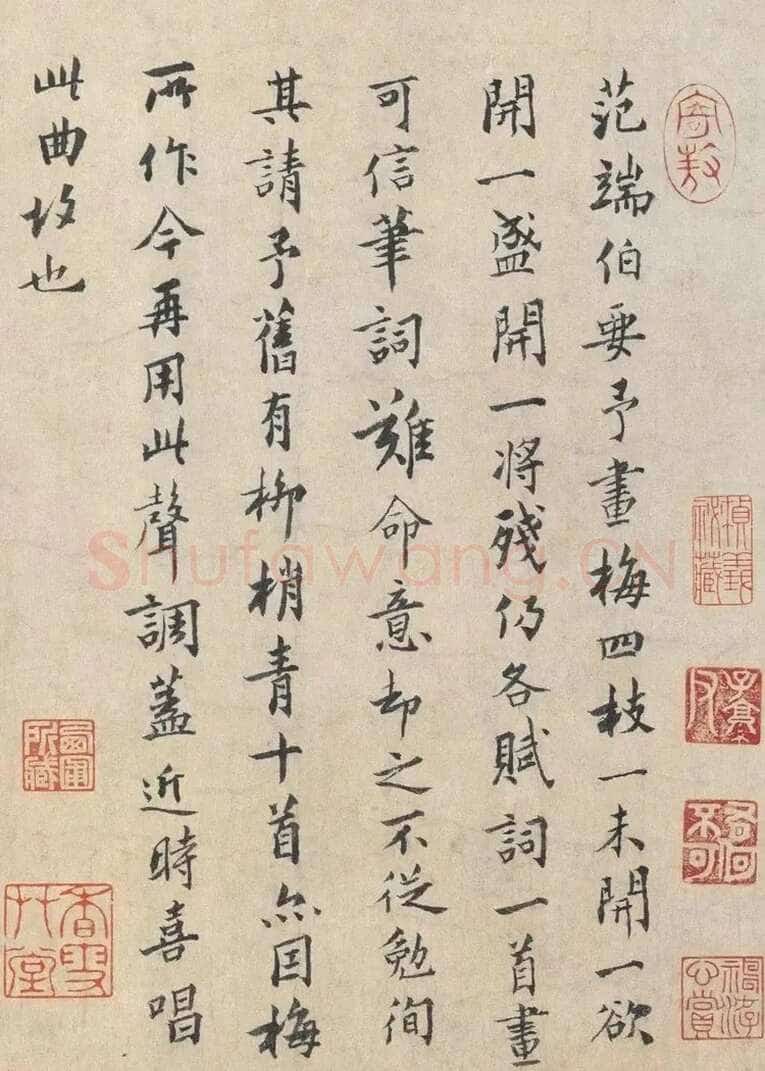 范端伯要予畫梅四枝一未開一欲
開一盛開一將殘仍各賦詞一首畫
可信筆詞難命意却之不從勉徇
其請予舊有柳梢青十首亦因梅
所作今再用此聲調蓋近時喜唱
此曲故也
shufawang.CN